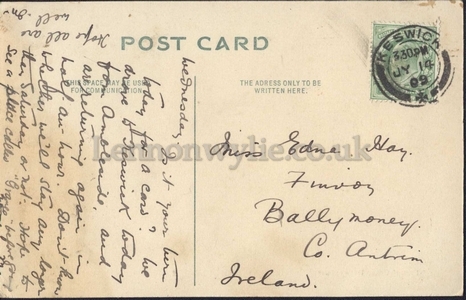 POST CARD
THIS SPACE MAY BE USED
FOR COMMUNICATION
THE ADRESS ONLY TO BE
WRITTEN HERE:
KESWICK
3.30PM
14
09
lennonwylie.co.uk
Miss Edna Hay.
Finvoy
Ballymoney.
Co. Antrim
Ireland.
Wednesday Is it your turn
today for a card? We
drove to Keswick today
from Ambleside, and
are returning again in
half an hour. Don't know
whether we'll stay any longer
than Saturday or not. Hope to
See a place called
Hope all are
well